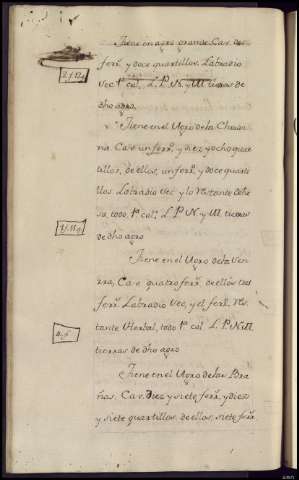 Tiene en agro grande Cav. dos
ferr.s y doce quartillos, Labradio
vec 1ª cal. L. P. N. y M. tierras de
dho agro
Tiene en el Agro de la Chousi
na Cav. un ferr.o y diez y ocho quar
tillos, de ellos, un ferr.o y doce quarti
llos Labradio vec y lo restante dehe
sa, todo 1ª cal. L. P. N. y M. tierras
de dho agro
Tiene en el Agro de la
rra, Cav. quatro ferr.s de ellos tres
ferr.s Labradio vec, y el ferr.o res
tante Herbal, todo 1ª cal. L. P. N. M.
tierras de dho agro
Tiene en el Agro de las Bra
ñas, Cav. Diez y siete ferr.s y diez
y siete quartillos de ellos, siete ferr.s